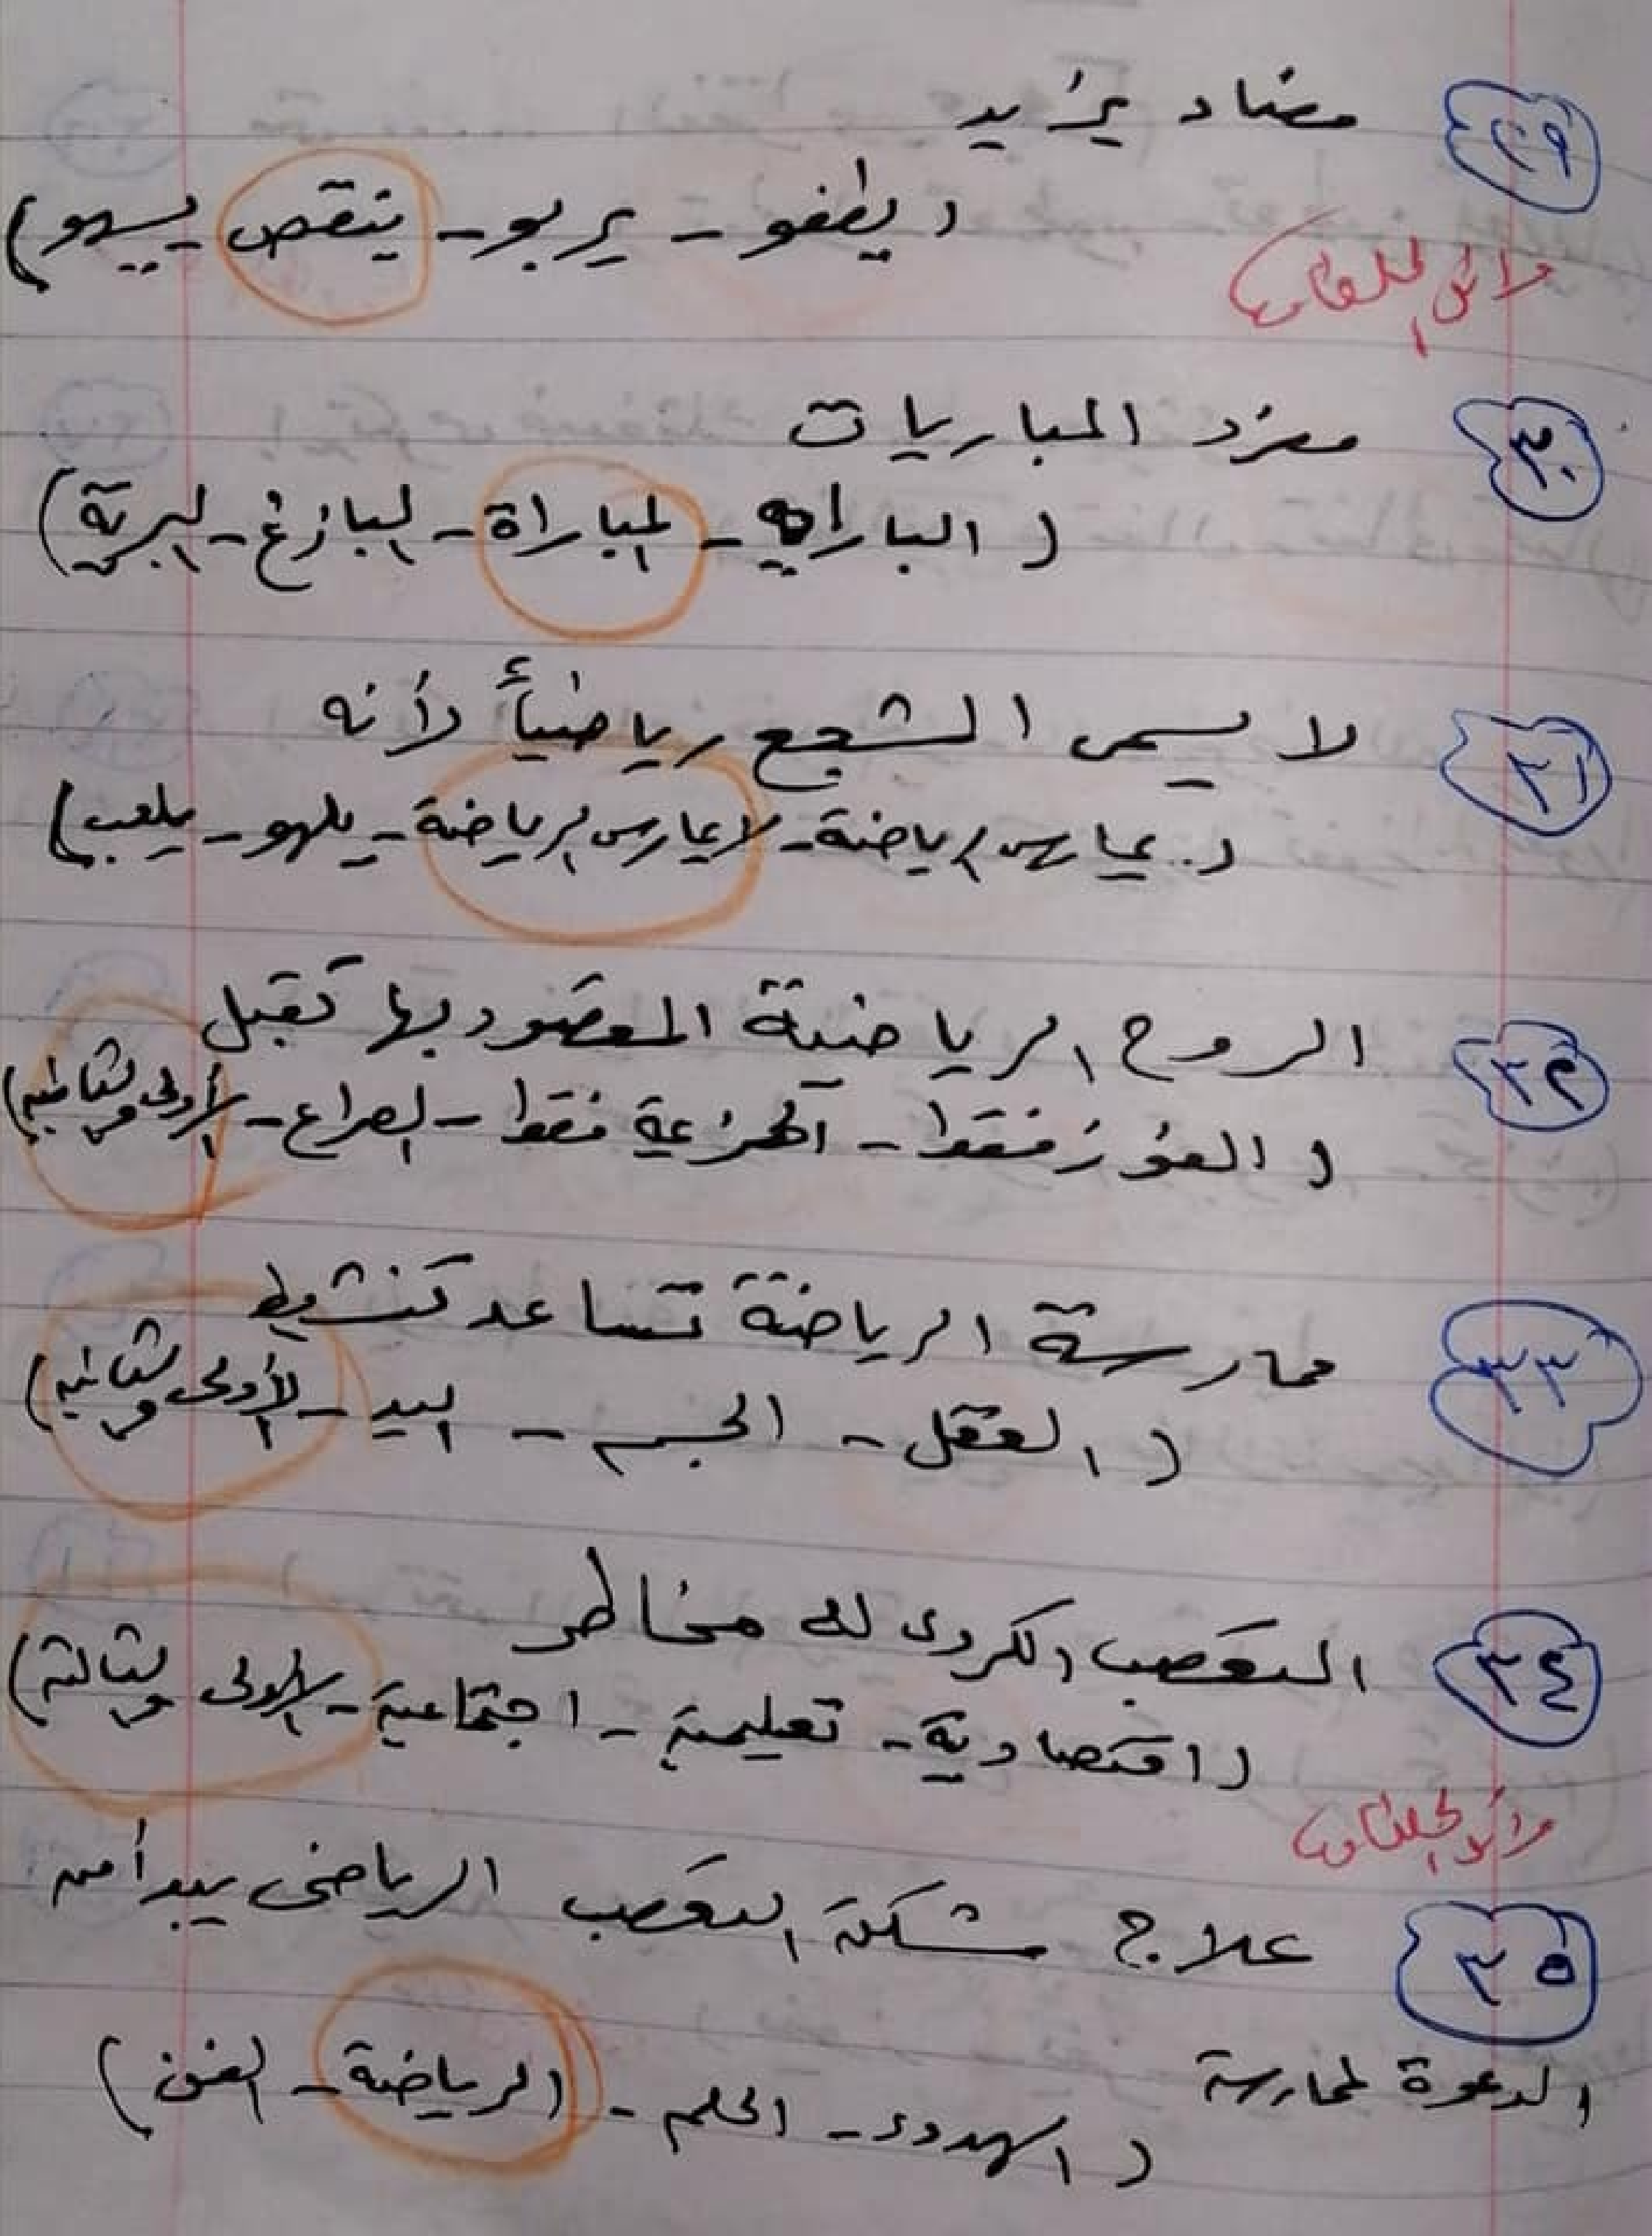 ٢٩ مضاد يزيد
( يطفو - يربو - ينقص - يسهو )
٣٠ مفرد المباريات
( البارايه - المباراة - البازغ - البرية )
٣١ لا يسمى المشجع رياضيأً لأنه
( يمارس الرياضة - لا يمارس الرياضة - يلهو - يلعب )
٣٢ الروح الرياضية المقصود بها تقبل
( الفوز فقط - الهزيمة فقط - الصراع - الأولى والثانية )
٣٣ ممارسة الرياضة تساعد تنشيط
( العقل - الجسم - اليد - الأولى والثانية )
٣٤ التعصب الكروى له مخاطر
( اقتصادية - تعليمية - اجتماعية - الأولى والثالثة )
٣٥ علاج مشكلة التعصب الرياضى يبدأ من
الدعوة لممارسة
( الهدوء - الحلم - الرياضة - الفن )